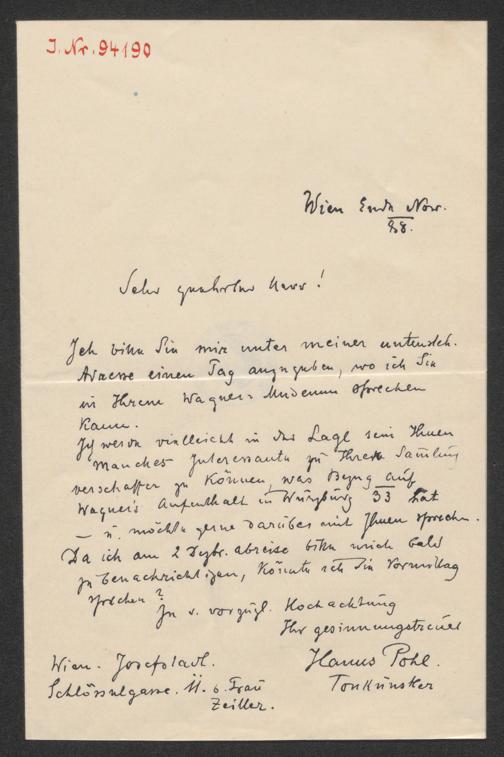 I.Nr. 94190
Wien Ende Nov.
88.
Sehr geehrter Herr!
Ich bitte Sie mir unter meiner untensteh.
Adresse einen Tag anzugeben, wo ich Sie
in Ihrem Wagner-Museum sprechen
kann.
Ich werde vielleicht in der Lage sein Ihnen
manches Interessante zu Ihrer Samlung
verschaffen zu können, was Bezug auf
Wagner's Aufenthalt in Würzburg 33 hat
– u. möchte gerne darüber mit Ihnen sprechen.
Da ich am 2 Dezbr. abreise bitte mich bald
zu benachrichtigen, könnte ich Sie Vormittag
sprechen?
In v. vorzügl. Hochachtung
Ihr gesinnungstreuer
Hanns Pohl.
Tonkünstler
Wien. Josefstadt.
Schlösselgasse. 11. b. Frau
Zeiller.